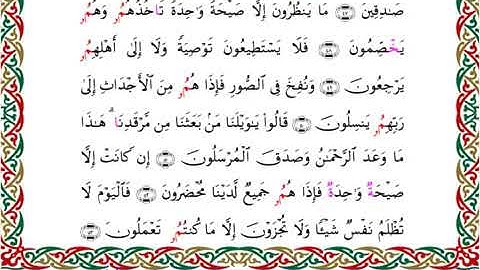 صَـٰدِقِينَ ۝٤٧ مَا يَنظُرُونَ إِلَّا صَيْحَةً وَٰحِدَةً تَاخُذُهُمُۥ وَهُمُۥ
يَخَصِّمُونَ ۝٤٨ فَلَا يَسْتَطِيعُونَ تَوْصِيَةً وَلَا إِلَىٰ أَهْلِهِمُۥ
يَرْجِعُونَ ۝٤٩ وَنُفِخَ فِى الصُّورِ فَإِذَا هُمُۥ مِنَ الْأَجْدَاثِ إِلَىٰ
رَبِّهِمُۥ يَنسِلُونَ ۝٥٠ قَالُوا۟ يَـٰوَيْلَنَا مَنۢ بَعَثَنَا مِن مَّرْقَدِنَا ۗ هَـٰذَا
مَا وَعَدَ الرَّحْمَـٰنُ وَصَدَقَ الْمُرْسَلُونَ ۝٥١ إِن كَانَتْ إِلَّا
صَيْحَةً وَٰحِدَةً فَإِذَا هُمُۥ جَمِيعٌ لَّدَيْنَا مُحْضَرُونَ ۝٥٢ فَالْيَوْمَ لَا
تُظْلَمُ نَفْسٌ شَيْـًٔا وَلَا تُجْزَوْنَ إِلَّا مَا كُنتُمُۥ تَعْمَلُونَ ۝٥٣